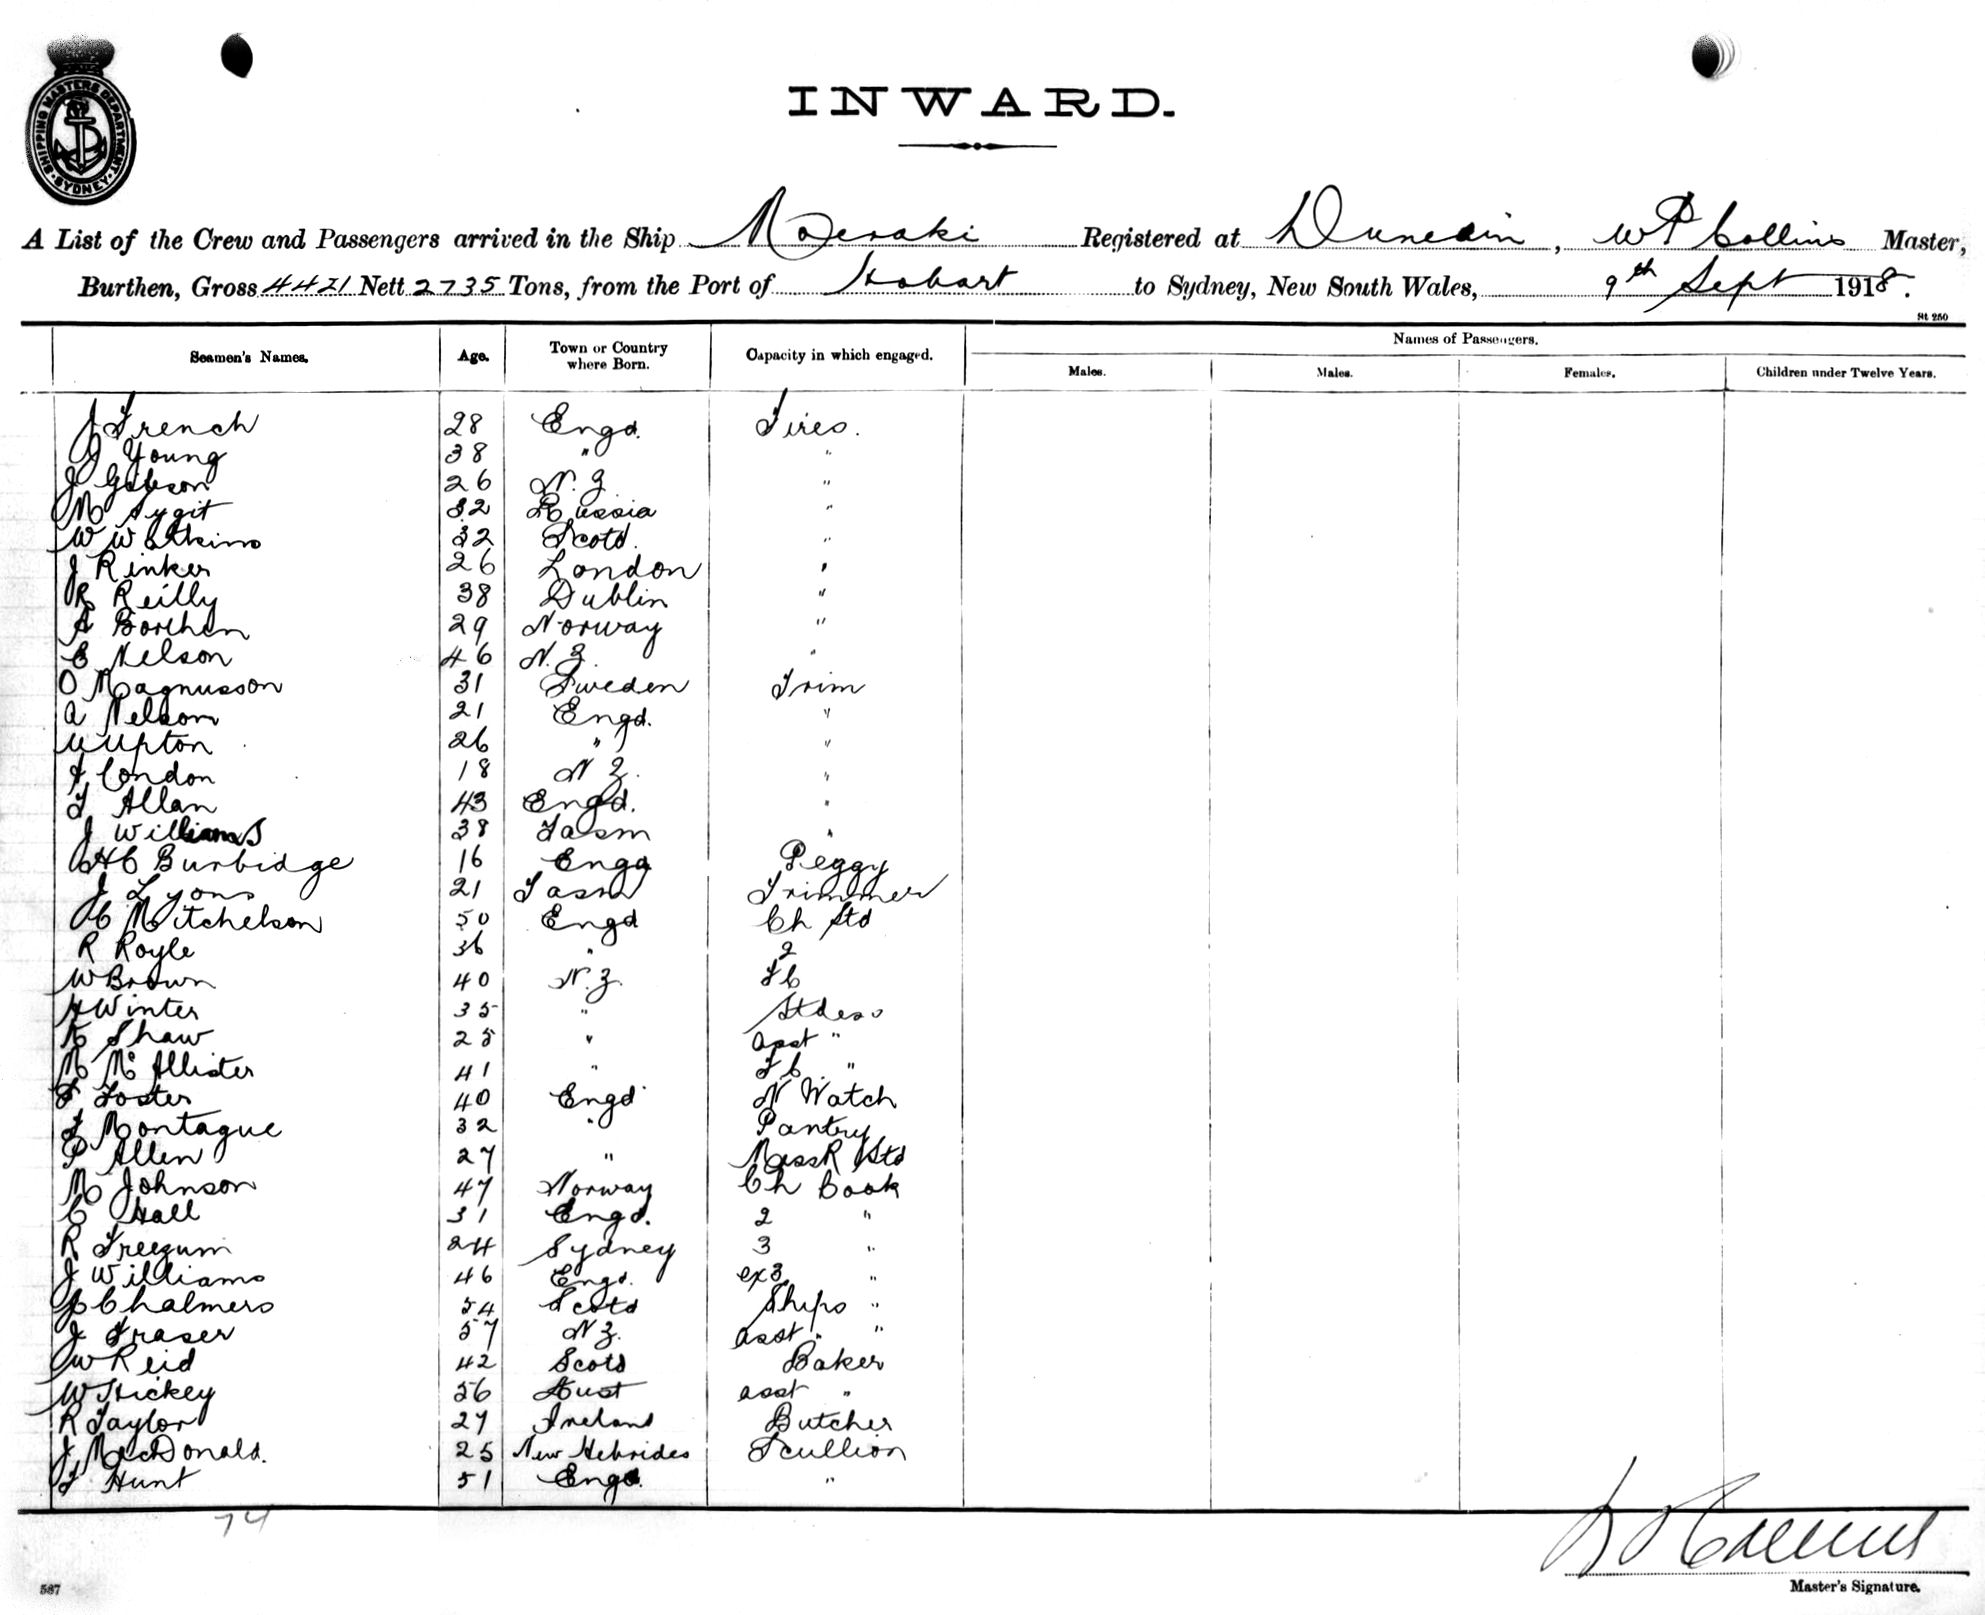 SHIPPING MASTERS DEPARTMENT · SYDNEY ·
INWARD.
A List of the Crew and Passengers arrived in the Ship Moeraki Registered at Dunedin, W P Collins Master,
Burthen, Gross 4421 Nett 2735 Tons, from the Port of Hobart to Sydney, New South Wales, 9th Sept 1918.
St 250
Seamen's Names. Age. Town or Country where Born. Capacity in which engaged. Names of Passengers.
Males. Males. Females. Children under Twelve Years.
J French 28 Engd. Fires.
J Young 38 " "
J Gibson 26 N. Z "
M Sygit 32 Russia "
W Watkins 32 Scotd. "
J Rinker 26 London "
R Reilly 38 Dublin "
A Borthen 29 Norway "
C Nelson 46 N. Z "
O Magnusson 31 Sweden Trim
A Nelson 21 Engd. "
W Upton 26 " "
A Condon 18 N Z. "
T Allan 43 Engd. "
J Williams 38 Tasm "
H C Burbidge 16 Engd Peggy
J Lyons 21 Tasm Trimmer
C Mitchelson 50 Engd Ch Std
R Royle 36 " 2
W Brown 40 N. Z. F C
H Winter 35 " Stdess
K Shaw 25 " asst "
M McAllister 41 " F C. "
F Foster 40 Engd N Watch
F Montague 32 " Pantry
P Allen 27 " MessR Std
M Johnson 47 Norway Ch Cook
C Hall 31 Engd. 2 "
R Treegum 24 Sydney 3 "
J Williams 46 Engd. ex3 "
J Chalmers 54 Scotd Ships "
J Fraser 57 N Z. asst " "
W Reid 42 Scotd Baker
W Hickey 56 Aust asst "
R Taylor 27 Ireland Butcher
J MacDonald. 25 New Hebrides Scullion
F Hunt 51 Engd. "
74
W P Collins
Master's Signature.
587